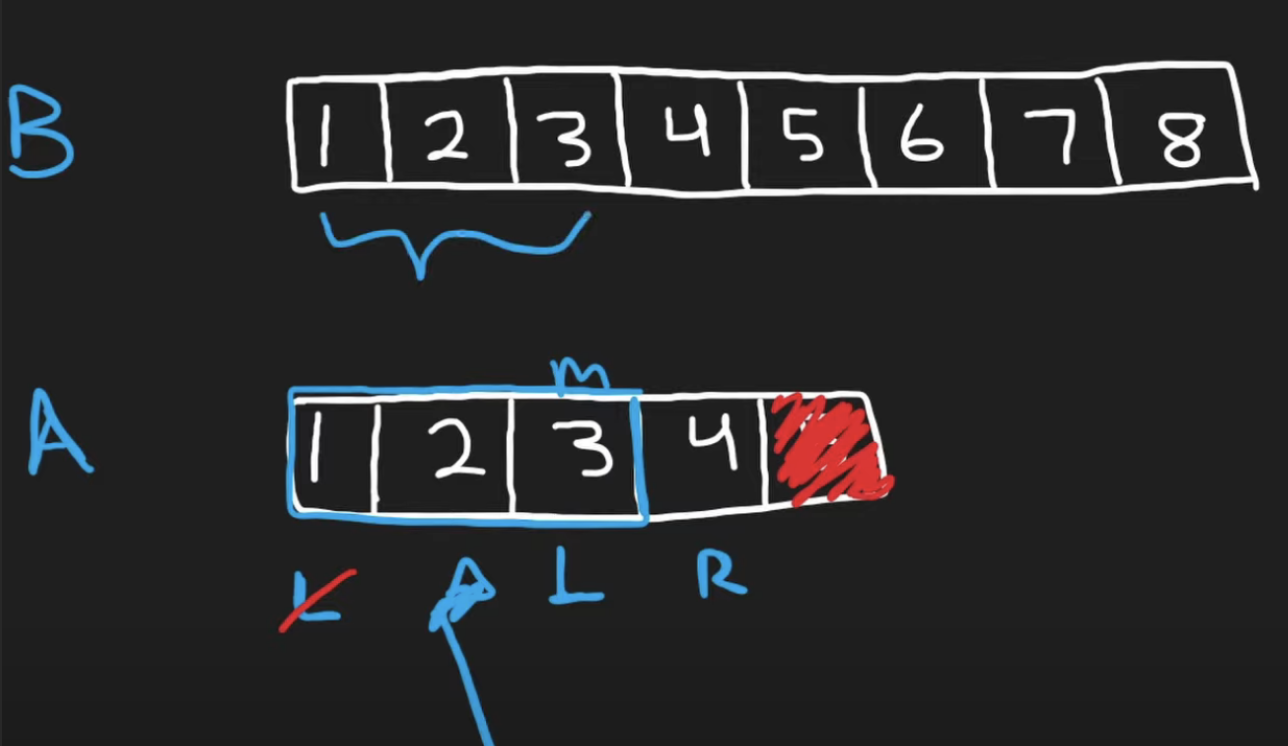 B 1 2 3 4 5 6 7 8
m
A 1 2 3 4
L L R